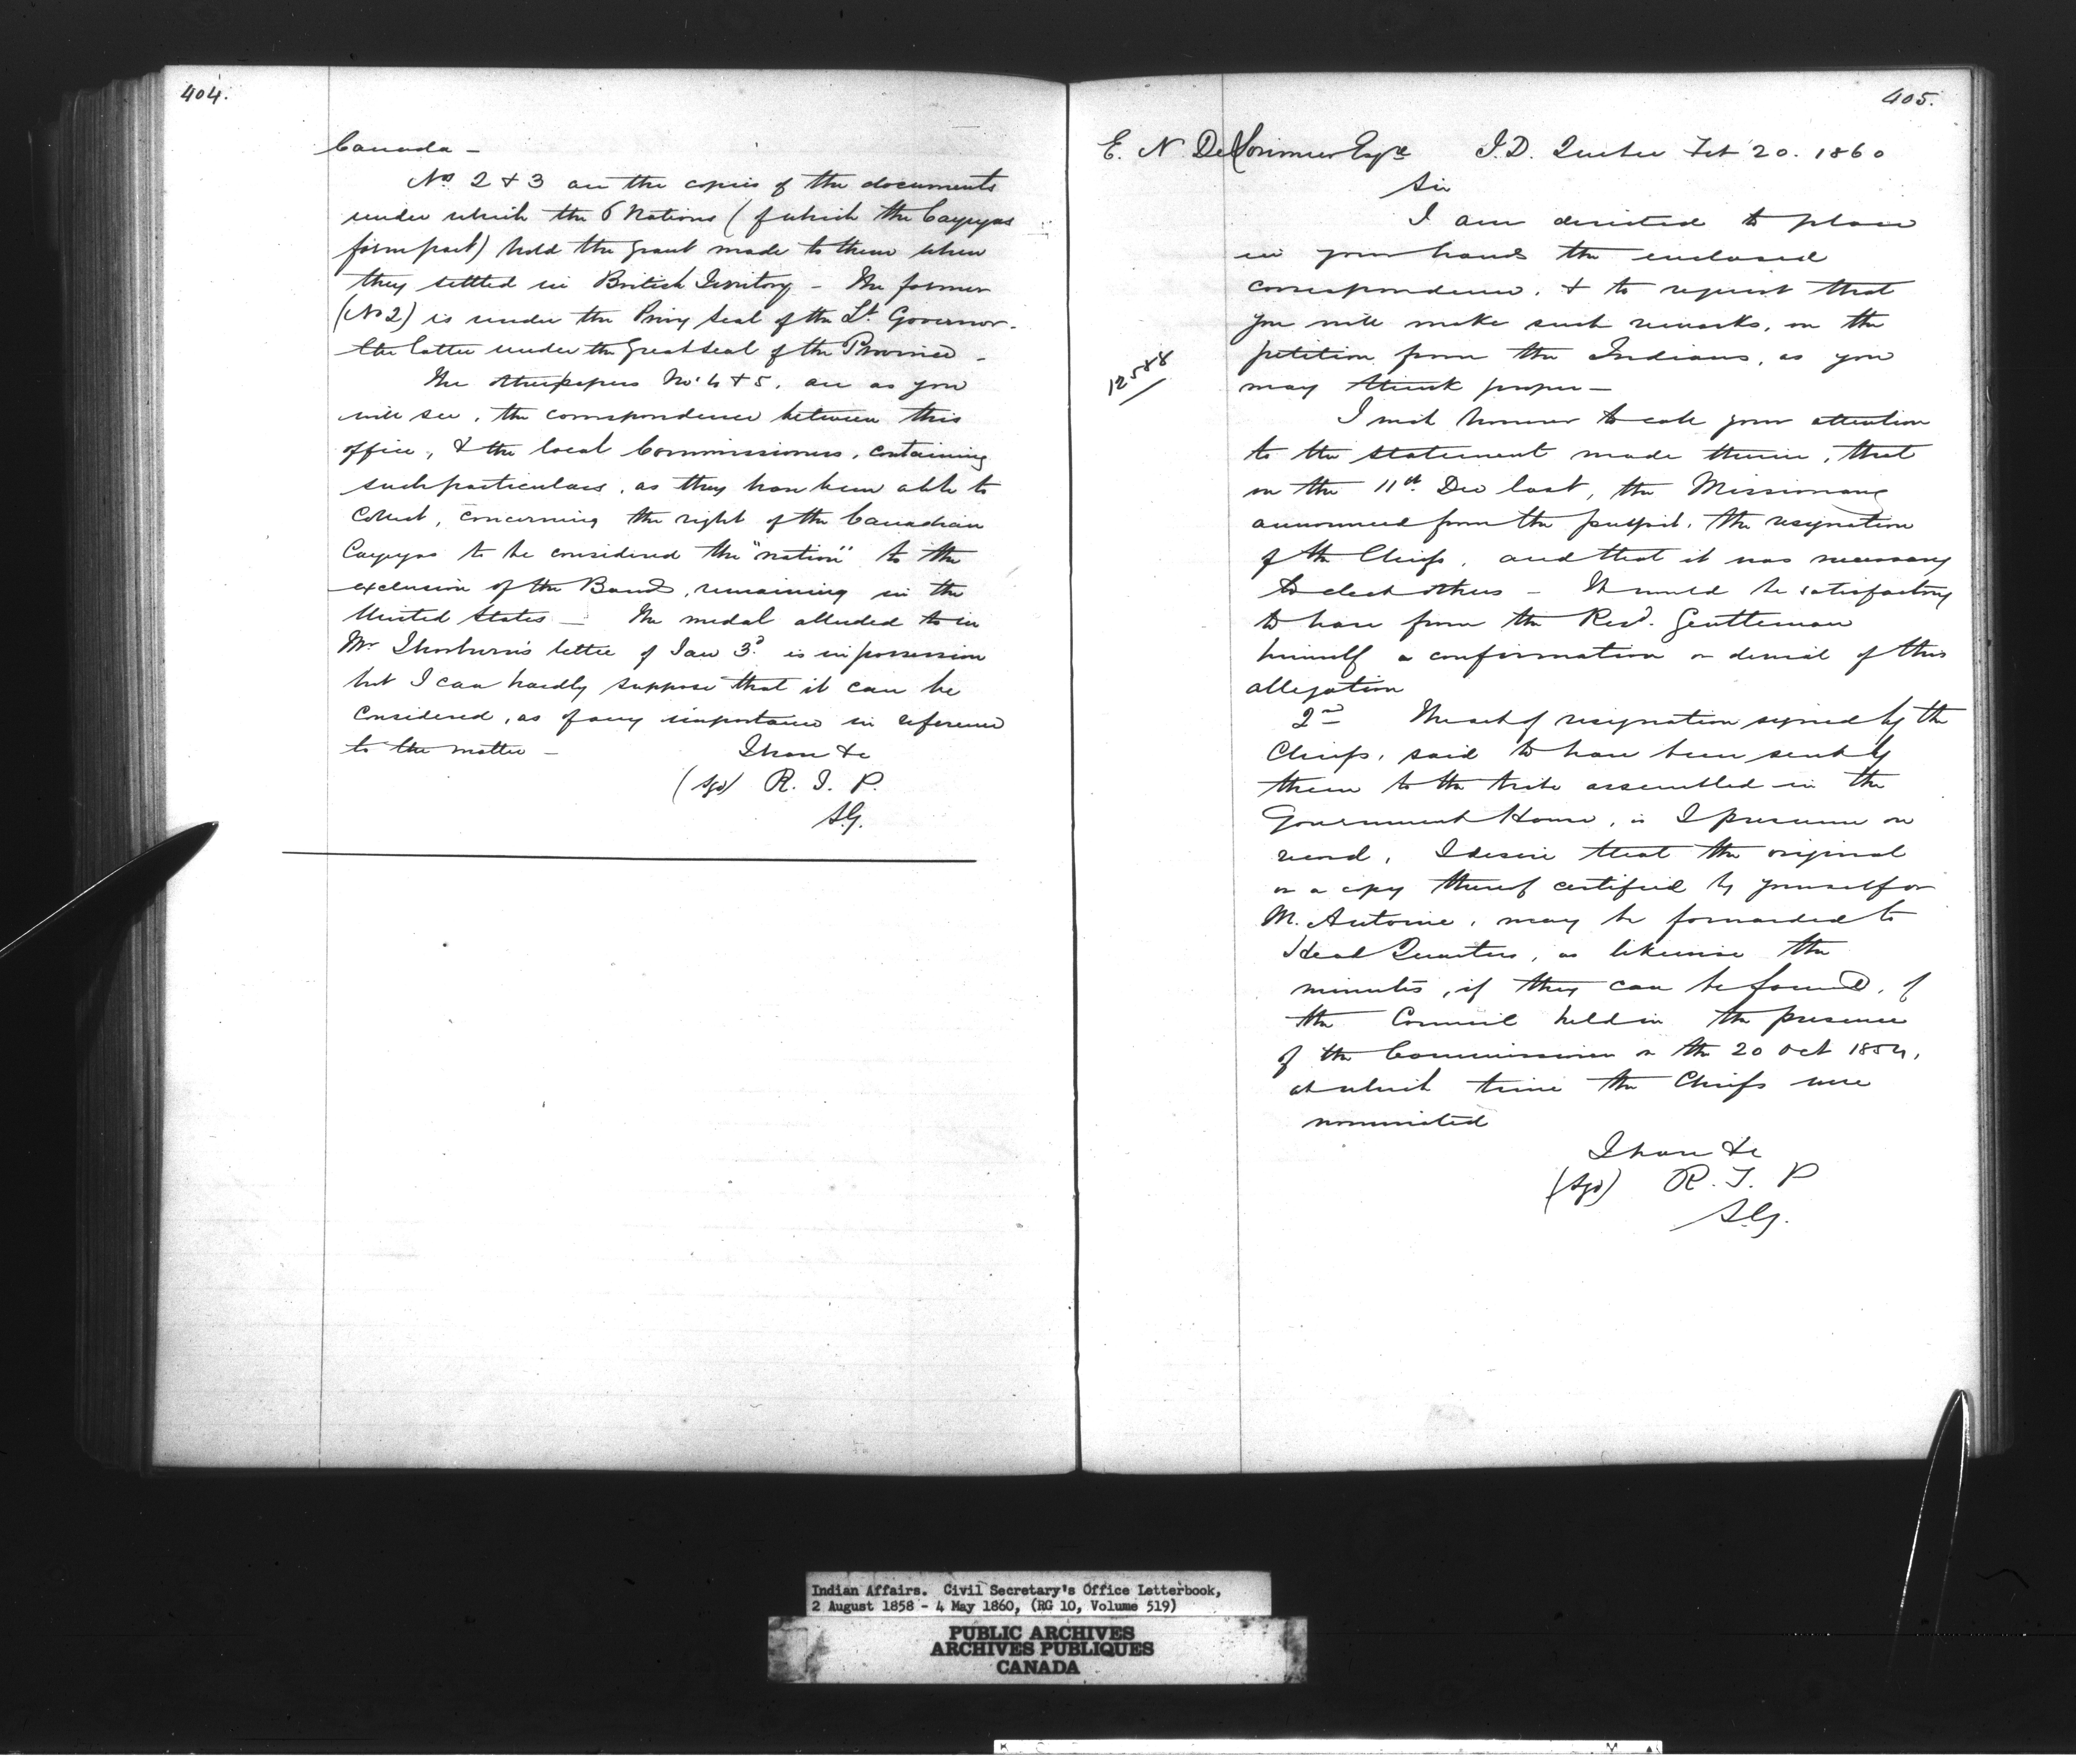 404.
Canada -
Nos 2 & 3 are the copies of the documents
under which the 6 Nations (of which the Cayugas
form part) hold the grant made to them when
they settled in British Territory - The former
(No 2) is under the Privy Seal of the Lt Governor -
the latter under the Great Seal of the Province -
The other papers Nos 4 & 5, are as you
will see, the correspondence between this
office, & the local Commissioners, containing
such particulars, as they have been able to
collect, concerning the right of the Canadian
Cayugas to be considered the "nation" to the
exclusion of the Band, remaining in the
United States - The medal alluded to in
Mr Thorburn's letter of Jan 3d is in possession
but I can hardly suppose that it can be
considered, as of any importance in reference
to the matter -
I have &c
(sgd) R. T. P.
S.G.
405.
E. N. DeLorimier Esqre I.D. Quebec Feb 20. 1860
Sir
I am directed to place
in your hands the enclosed
correspondence, & to request that
you will make such remarks, on the
petition from the Indians, as you
may think proper -
12588
I wish however to call your attention
to the statement made therein, that
on the 11th Dec last, the Missionary
announced from the pulpit, the resignation
of the Chiefs, and that it was necessary
to elect others - It would be satisfactory
to have from the Revd. Gentleman
himself a confirmation or denial of this
allegation
2nd The act of resignation signed by the
Chiefs, said to have been sent by
them to the tribe assembled in the
Government House, is I presume on
record, I desire that the original
or a copy thereof certified by yourself or
M. Antoine, may be forwarded to
Head Quarters, as likewise the
minutes, if they can be found, of
the Council held in the presence
of the Commissioner on the 20 Oct 1854,
at which time the Chiefs were
nominated
I have &c
(sgd) R. T. P
S.G.
Indian Affairs. Civil Secretary's Office Letterbook,
2 August 1858 - 4 May 1860, (RG 10, Volume 519)
PUBLIC ARCHIVES
ARCHIVES PUBLIQUES
CANADA